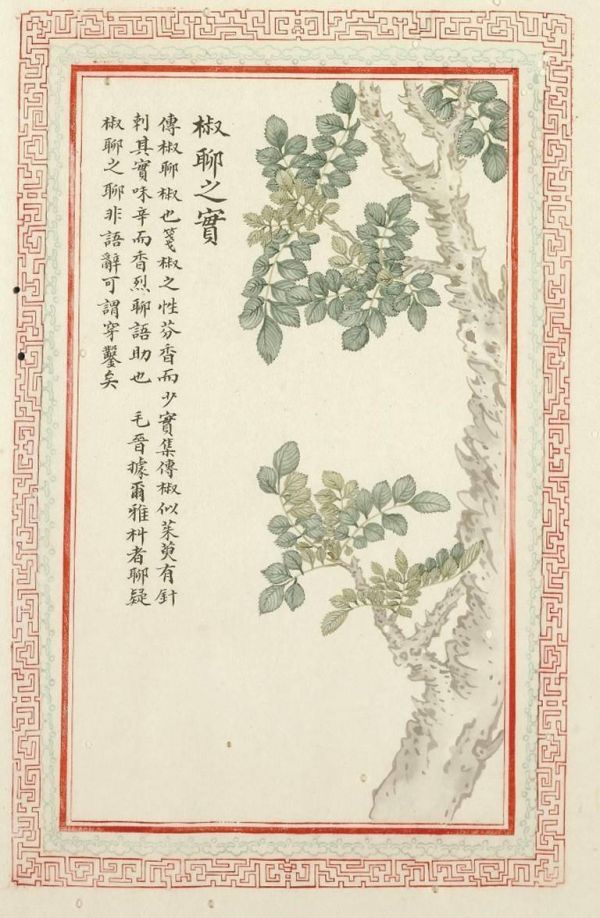 椒聊之實
傳椒聊椒也箋椒之性芬香而少實集傳椒似茱萸有針
刺其實味辛而香烈聊語助也 毛晉據爾雅朻者聊疑
椒聊之聊非語辭可謂穿鑿矣